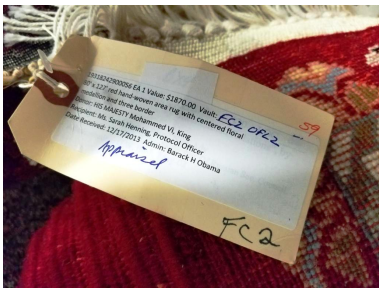 19318242900056 EA 1 Value: $1870.00 Vault: EC2 OFL2
x 127" red hand woven area rug with centered floral
medallion and three border
HIS MAJESTY Mohammed VI, King
Recipient: Ms. Sarah Henning, Protocol Officer
Date Received: 12/17/2013 Admin: Barack H Obama
Appraisel
59
FC2